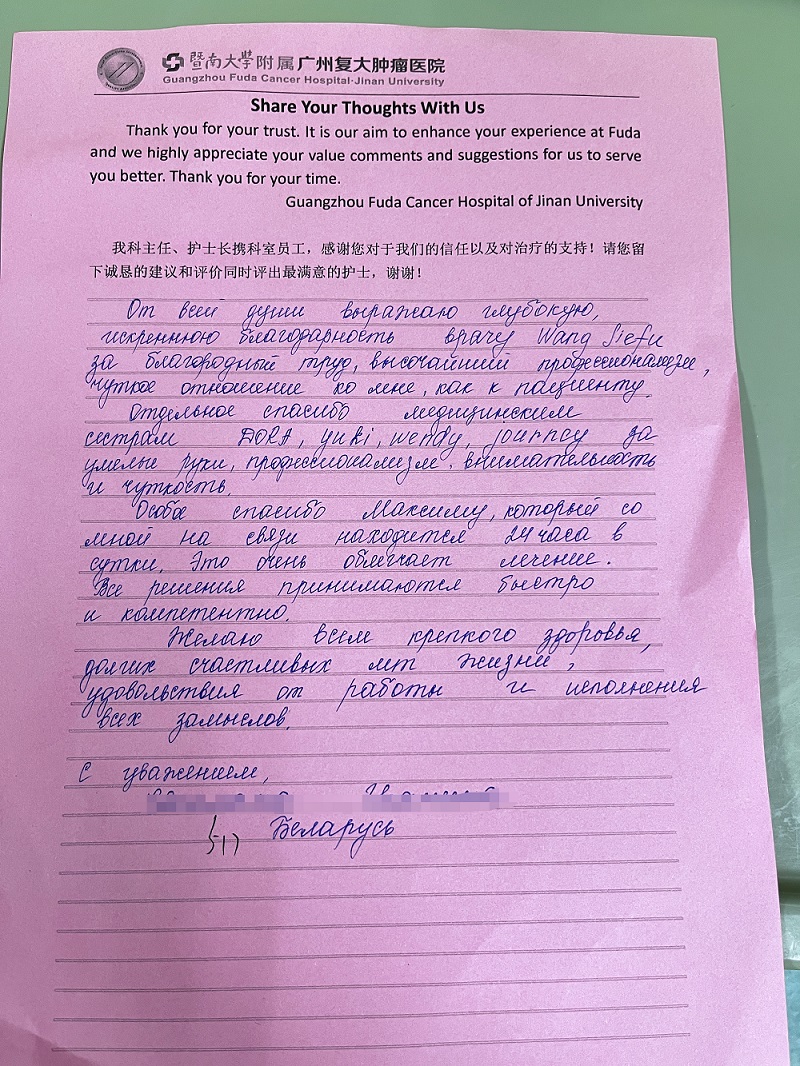 暨南大學附属广州复大肿瘤医院
Guangzhou Fuda Cancer Hospital·Jinan University
Share Your Thoughts With Us
Thank you for your trust. It is our aim to enhance your experience at Fuda
and we highly appreciate your value comments and suggestions for us to serve
you better. Thank you for your time.
Guangzhou Fuda Cancer Hospital of Jinan University
我科主任、护士长携科室员工，感谢您对于我们的信任以及对治疗的支持！请您留
下诚恳的建议和评价同时评出最满意的护士，谢谢！
От всей души выражаю глубокую,
искреннюю благодарность врачу Wang
за благородный труд, высочайший профессионализм,
чуткое отношение ко мне, как к пациенту.
Отдельное спасибо медицинским
сестрам DORA, yuki, wendy, journey за
умелые руки, профессионализм, внимательность
и чуткость.
Особое спасибо Максиму, который со
мной на связи находится 24 часа в
сутки. Это очень облегчает лечение.
Все решения принимаются быстро
и компетентно.
Желаю всем крепкого здоровья,
долгих счастливых лет жизни,
удовольствия от работы и исполнения
всех замыслов.
С уважением,
517 Беларусь